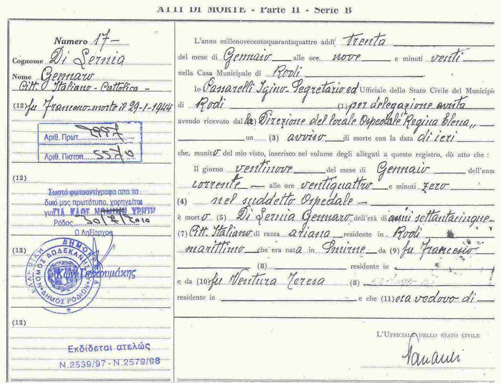 ATTI DI MORTE - Parte II - Serie B
Numero 17-
Cognome Di Lernia
Nome Gennaro
Citt. Italiano - Cattolico -
(12) fu Francesco morto il 29-1-1944
Αριθ. Πρωτ. 7997
Αριθ. Πιστοπ. 5570
(12)
Σωστό φωτοαντίγραφο από το
δικό μας πρωτότυπο, χορηγείται
για ΓΙΑ ΚΑΘΕ ΝΟΜΙΜΗ ΧΡΗΣΗ
Ρόδος 2010
Ο Ληξίαρχος
(12)
ΔΗΜΟΣ ΡΟΔΙΩΝ
ΝΟΜΟΣ ΔΩΔΕΚΑΝΗΣΟΥ
(12)
Εκδίδεται ατελώς
Ν.2539/97 - Ν.2579/98
L'anno millenovecentoquarantaquattro addì trenta
del mese di Gennaio alle ore nove e minuti venti
nella Casa Municipale di Rodi
Io Passarelli Igino Segretario ed Ufficiale dello Stato Civile del Municipio
di Rodi (1) per delegazione avuta
avendo ricevuto dalla (2) Direzione del locale Ospedale "Regina Elena"
un (3) avviso di morte con la data di ieri
che, munito del mio visto, inserisco nel volume degli allegati a questo registro, dò atto che :
Il giorno ventinove del mese di Gennaio dell'anno
corrente alle ore ventiquattro e minuti zero
(4) nel suddetto Ospedale
è morto (5) Di Lernia Gennaro dell'età di anni settantacinque
(7) Citt. Italiano di razza ariana residente in Rodi
marittimo che era nato in Smirne da (9) fu Francesco
(8) residente in
e da (10) fu Ventura Teresa (8)
residente in e che (11) era vedovo di
L'UFFICIALE DELLO STATO CIVILE